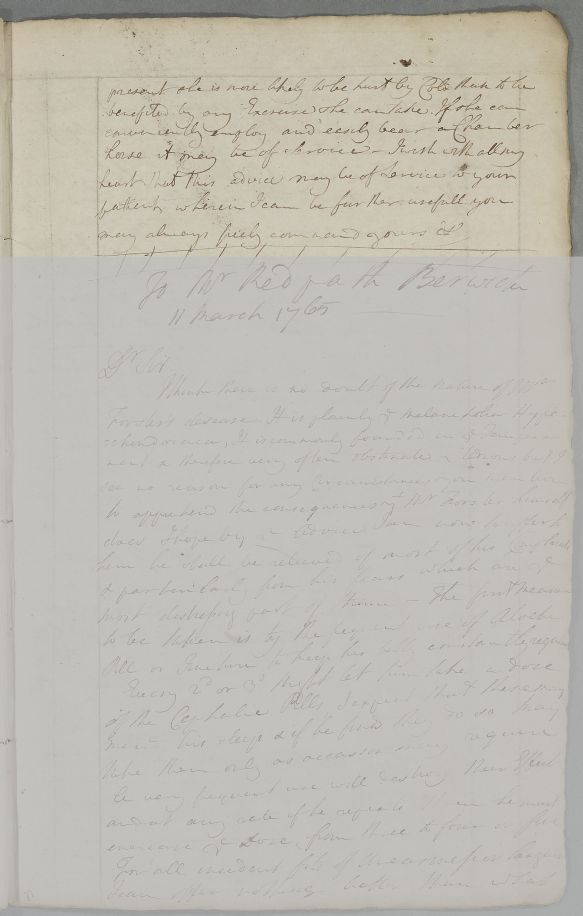 present she is more likely to be hurt by Cold than to be
benefited by any Exercise she can take. If she can
conveniently employ and easily bear a Chamber
horse it may be of Service – I wish with all my
heart that this advice may be of Service to your
patient, wherein I can be further usefull you
may always freely command yours &c
To Mr Redpath Berwick
11 March 1765
Dr Sir
I think there is no doubt of the nature of Mr
Forster's disease. It is plainly melancholia Hypo
=chondriaca, It is commonly founded in
very often obstinate & tedious but I
see no reason for any Circumstances you mention
to apprehend the consequences yt Mr Forster himself
does I hope by advice I am now to
him he shall be relieved of most of his
& particularly from his fears which are ye
most distressing part of them – The first measure
to be taken is by the frequent use of Aloetic
Pill or tincture to keep his belly constantly regular
Every 2d or 3d Night let him take a dose
of the Cephalic Pills I expect that these may
his sleep & if he finds they do so may
take them only as occasion may require
very frequent use will destroy their Effect
and at any rate if he repeats them he must
encrease ye dose, from three to four or five
For all incident fits of
I can offer nothing better than what